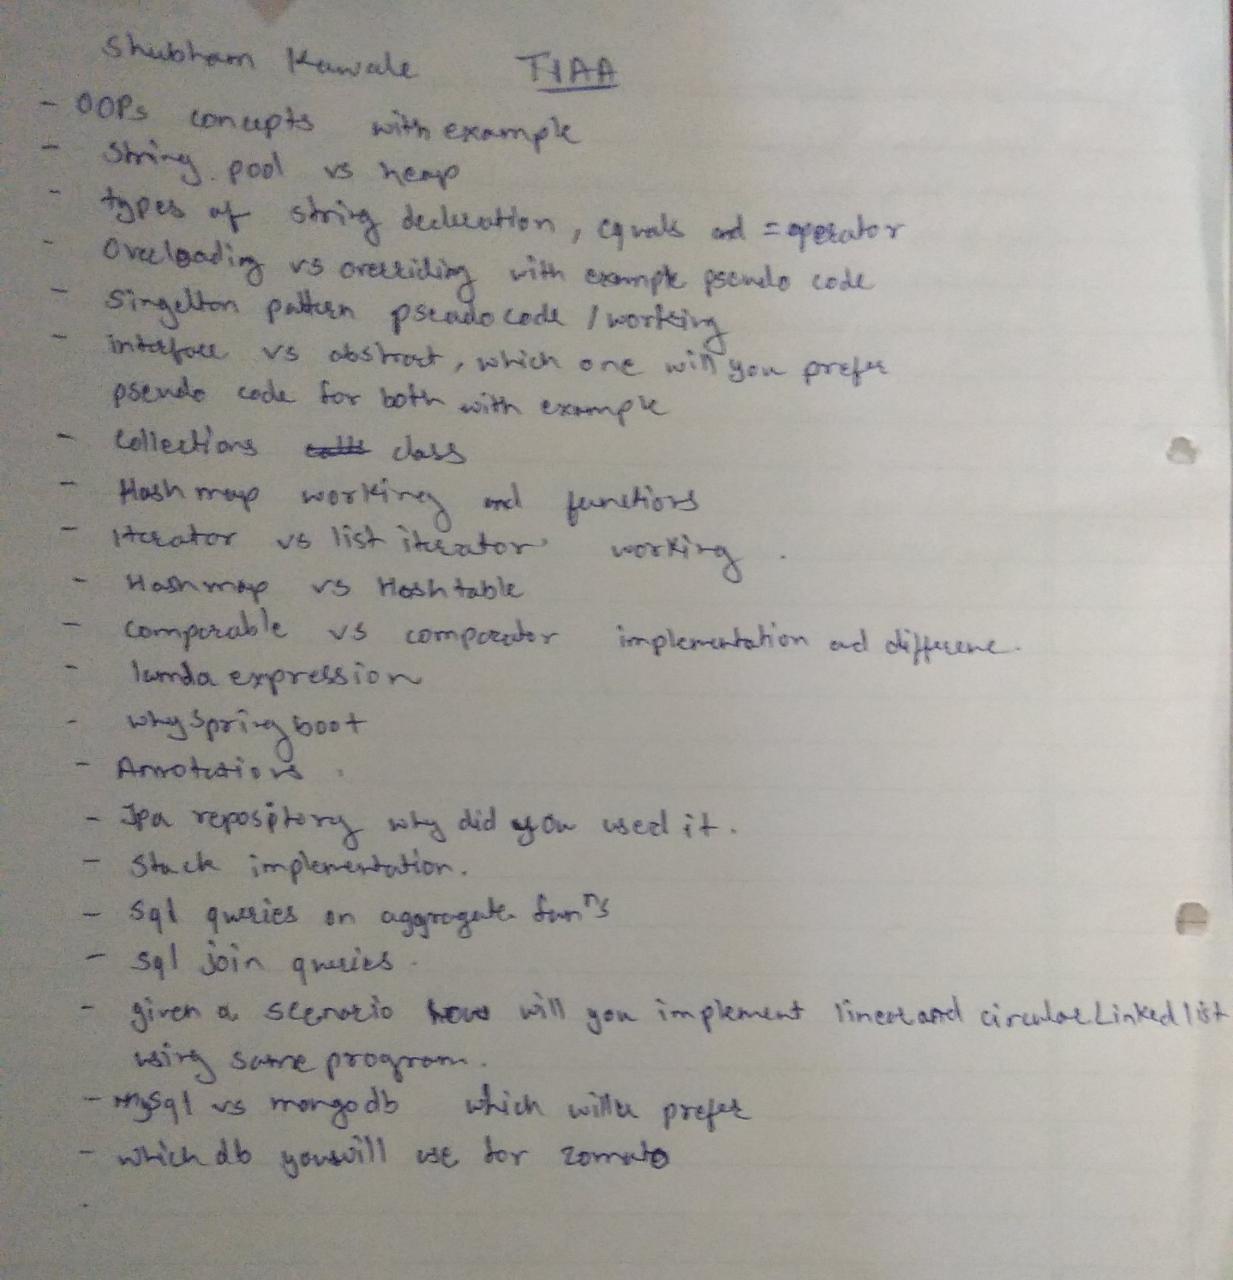 Shubham Kawale TIAA
- OOPs concepts with example
- String pool vs heap
- types of string declaration, equals and = operator
- Overloading vs overriding with example pseudo code
- Singelton pattern pseudo code / working
- interface vs abstract, which one will you prefer
pseudo code for both with example
- Collections class
- Hashmap working and functions
- Iterator vs list iterator working.
- Hashmap vs Hashtable
- Comparable vs comparator implementation and difference.
- lamda expression
- why Spring boot
- Annotations.
- Jpa repository why did you used it.
- Stack implementation.
- Sql queries on aggregate funⁿs
- Sql join queries.
- given a scenario how will you implement linear and circular Linked list
using same program.
- MySql vs mongodb which will u prefer
- which db you will use for zomato